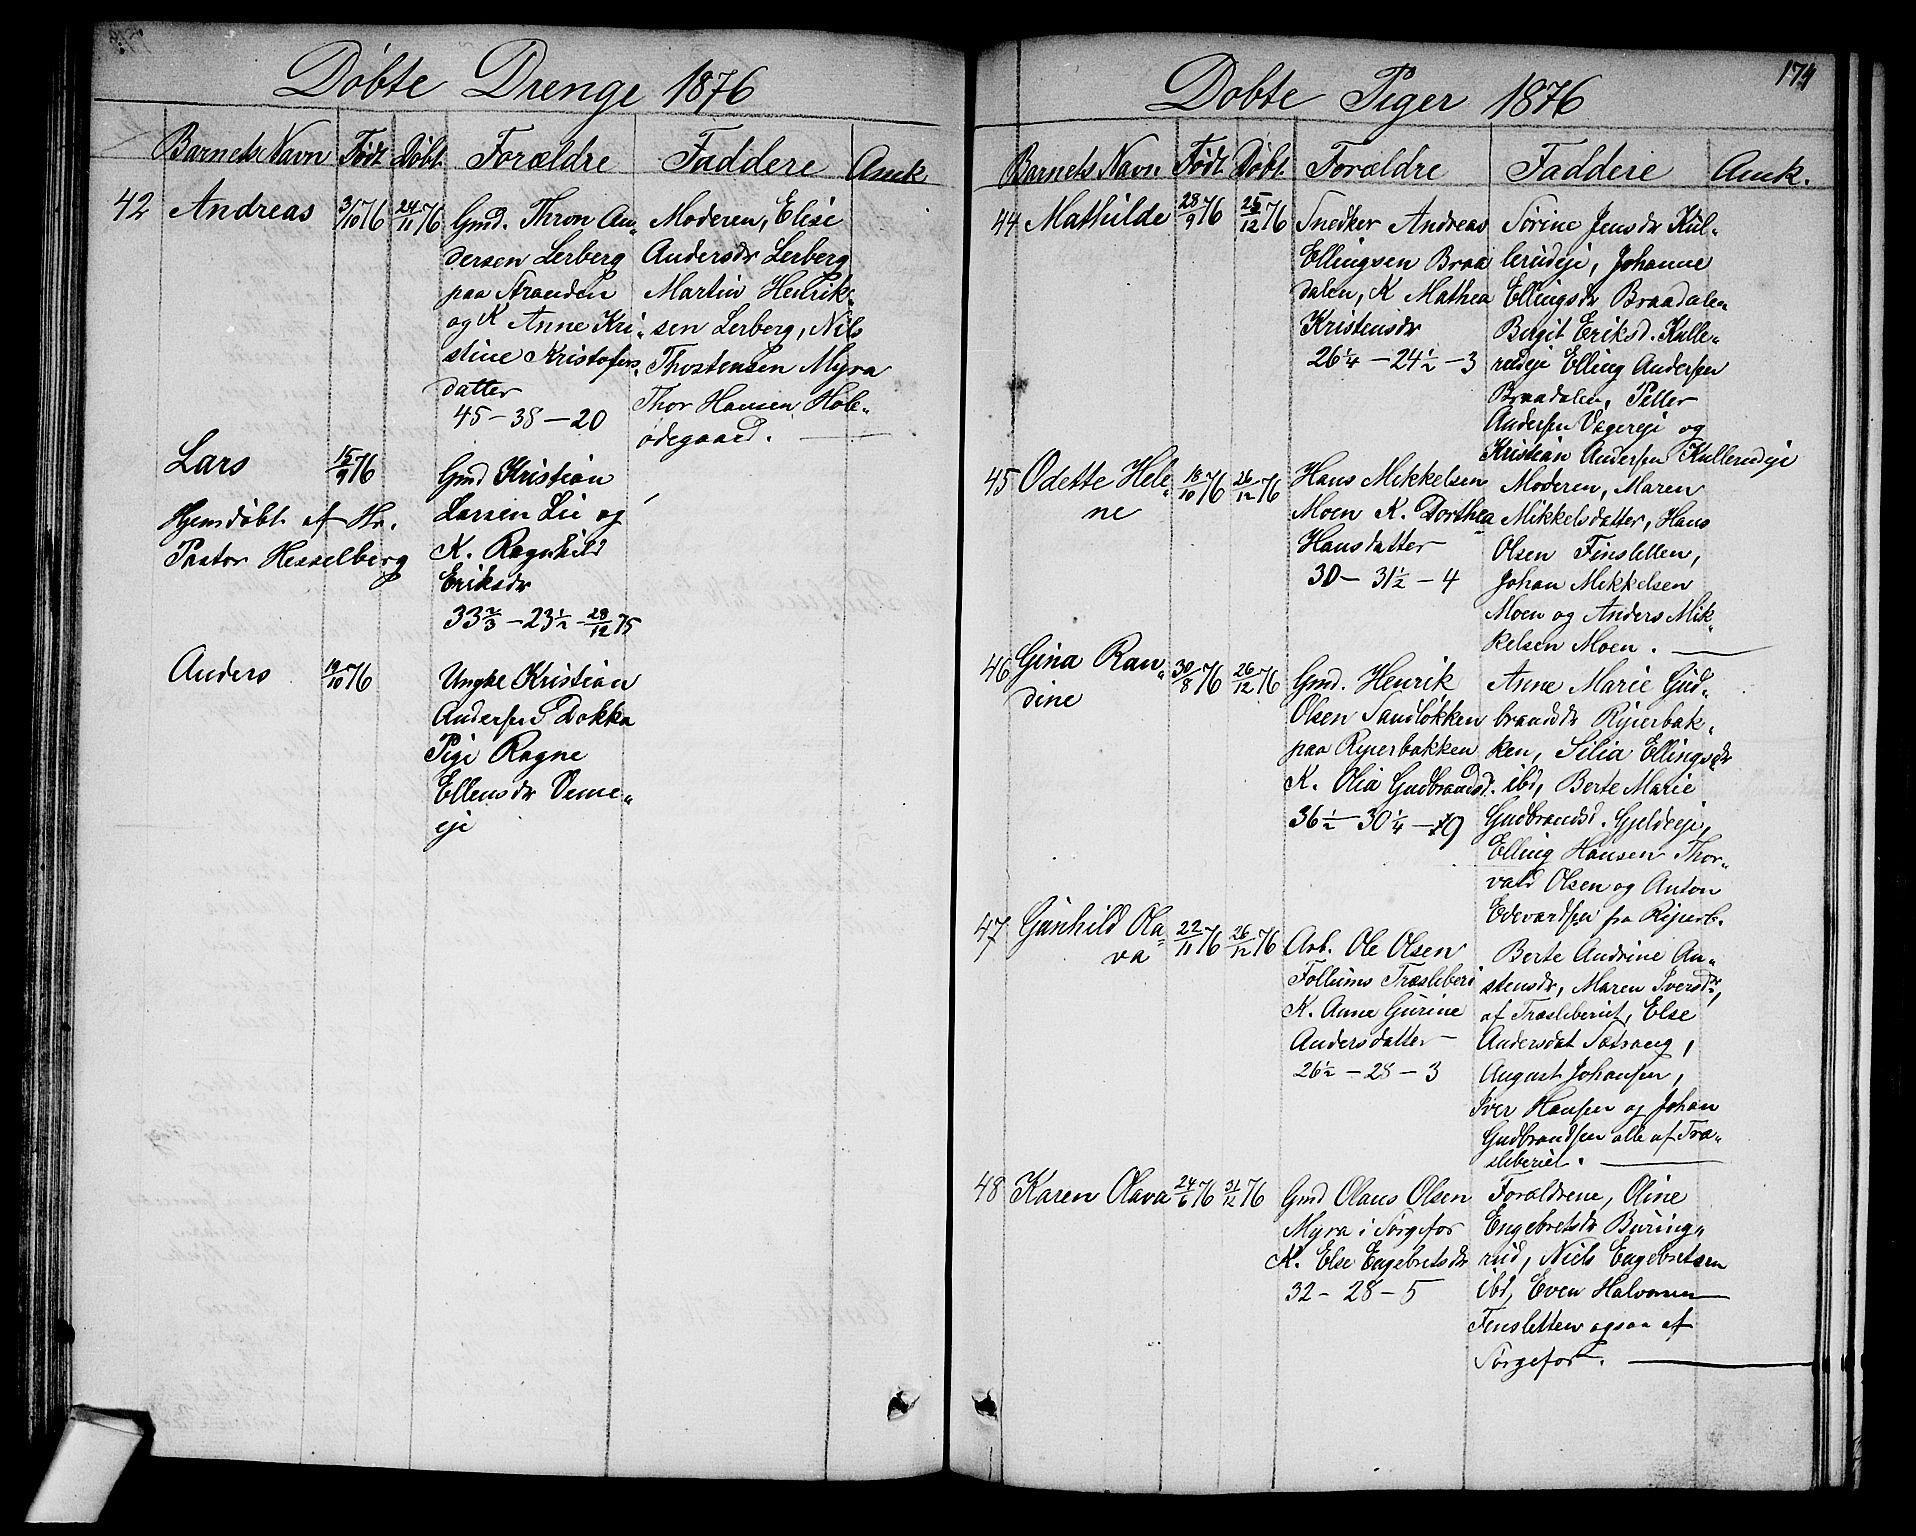 Døbte Drenge 1876
Barnets Navn Født Døbt Forældre Faddere Anmk
42 Andreas 3/10 76 24/11 76
Gmd. Thron An-
dersen Lerberg
paa Stranden
og K Anne Kri-
stine Kristofers
datter
45 - 38 - 20
Moderen, Elise
Andersdr Lerberg
Martin Henrik-
sen Lerberg, Nils
Thostensen Myra
Thor Hansen Hole-
ødegaard.
Lars 15/9 76
Hjemdøbt af Hr.
Pastor Hesselberg
Gmd Kristian
Larsen Lie og
K. Ragnhild
Eriksdr
33 2/3 - 23 1/2 - 28/12 75
Anders 19/10 76
Ungkl Kristian
Andersen S Dokka
Pige Ragne
Ellensdr Veme-
eje
174
Dobte Piger 1876
Barnets Navn. Født Døbt. Forældre Faddere Anmk.
44 Mathilde 28/9 76 25/12 76
Snedker Andreas
Ellingsen Braa
dalen, K Mathea
Kristensdr
26 1/4 - 24 1/2 - 3
Sørine Jensdr Kul-
lerudeje, Johanne
Ellingsdr Braadalen
Birgit Eriksd. Kulle-
rudeje Elling Andersen
Braadalen, Petter
Andersen Vagereje og
Kristian Andersen Kullerudeje
45 Odette Hele-
ne 18/10 76 26/12 76
Hans Mikkelsen
Moen K. Dorthea
Hansdatter
30 - 31 1/2 - 4
Moderen, Maren
Mikkelsdatter, Hans
Olsen Finsletten,
Johan Mikkelsen
Moen og Anders Mik-
kelsen Moen.
46 Gina Ran-
dine 30/8 76 26/12 76
Gmd. Henrik
Olsen Sandløkken
paa Ryierbakken
K. Olia Gudbrandsd.
36 1/2 - 30 1/4 - 19
Anne Marie Gud-
brandsdr Ryierbak-
ken, Silia Ellingsdr
ibd, Berte Marie
Gudbrandsd. Gjeldeeje,
Elling Hansen Thor-
vald Olsen og Anton
Edevardsen fra Ryierb.
47 Gunhild Ola-
va 22/11 76 26/12 76
Arb. Ole Olsen
Follums Træsliberi
K. Anne Gurine
Andersdatter
26 1/2 - 28 - 3
Berte Andrine An-
stensdr, Maren Iversdr,
af Træsliberiet, Else
Andersdat Sætrang,
August Johansen,
Iver Hansen og Johan
Gudbrandsen alle af Træ-
sliberiet.
48 Karen Olava 24/6 76 31/12 76
Gmd Olaus Olsen
Myra i Sørgefor
K. Else Engebretsdr
32 - 28 - 5
Forældrene, Oline
Engebretsdr Buring-
rud, Niels Engebretsen
ibd, Even Halvorsen
Finsletten ogsaa af
Sørgefor.